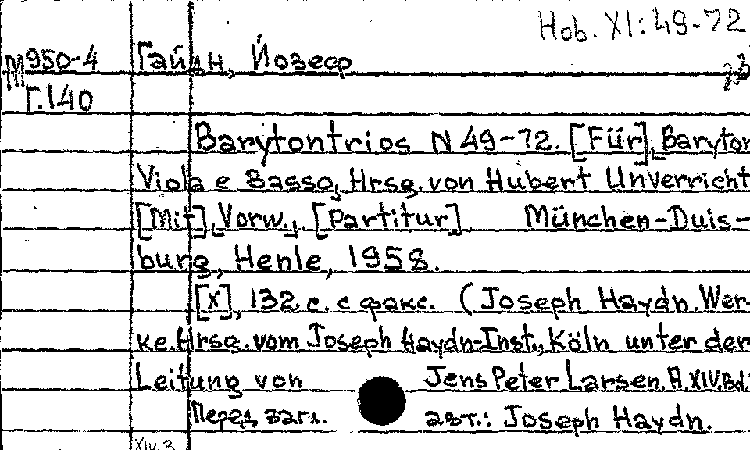 Hob. XI:49-72
М950-4 Гайдн, Йозеф
Г.140
Barytontrios N 49-72. [Für] Baryton
Viola e Basso, Hrsg. von Hubert Unverricht
[Mit] Vorw., [Partitur]. München-Duis-
burg, Henle, 1958.
[X], 132 с. с факс. (Joseph Haydn. Wer-
ke. Hrsg. vom Joseph Haydn-Inst., Köln unter der
Leitung von Jens Peter Larsen. R. XIV. Bd.
Перед загл. авт.: Joseph Haydn.
XIV, 3